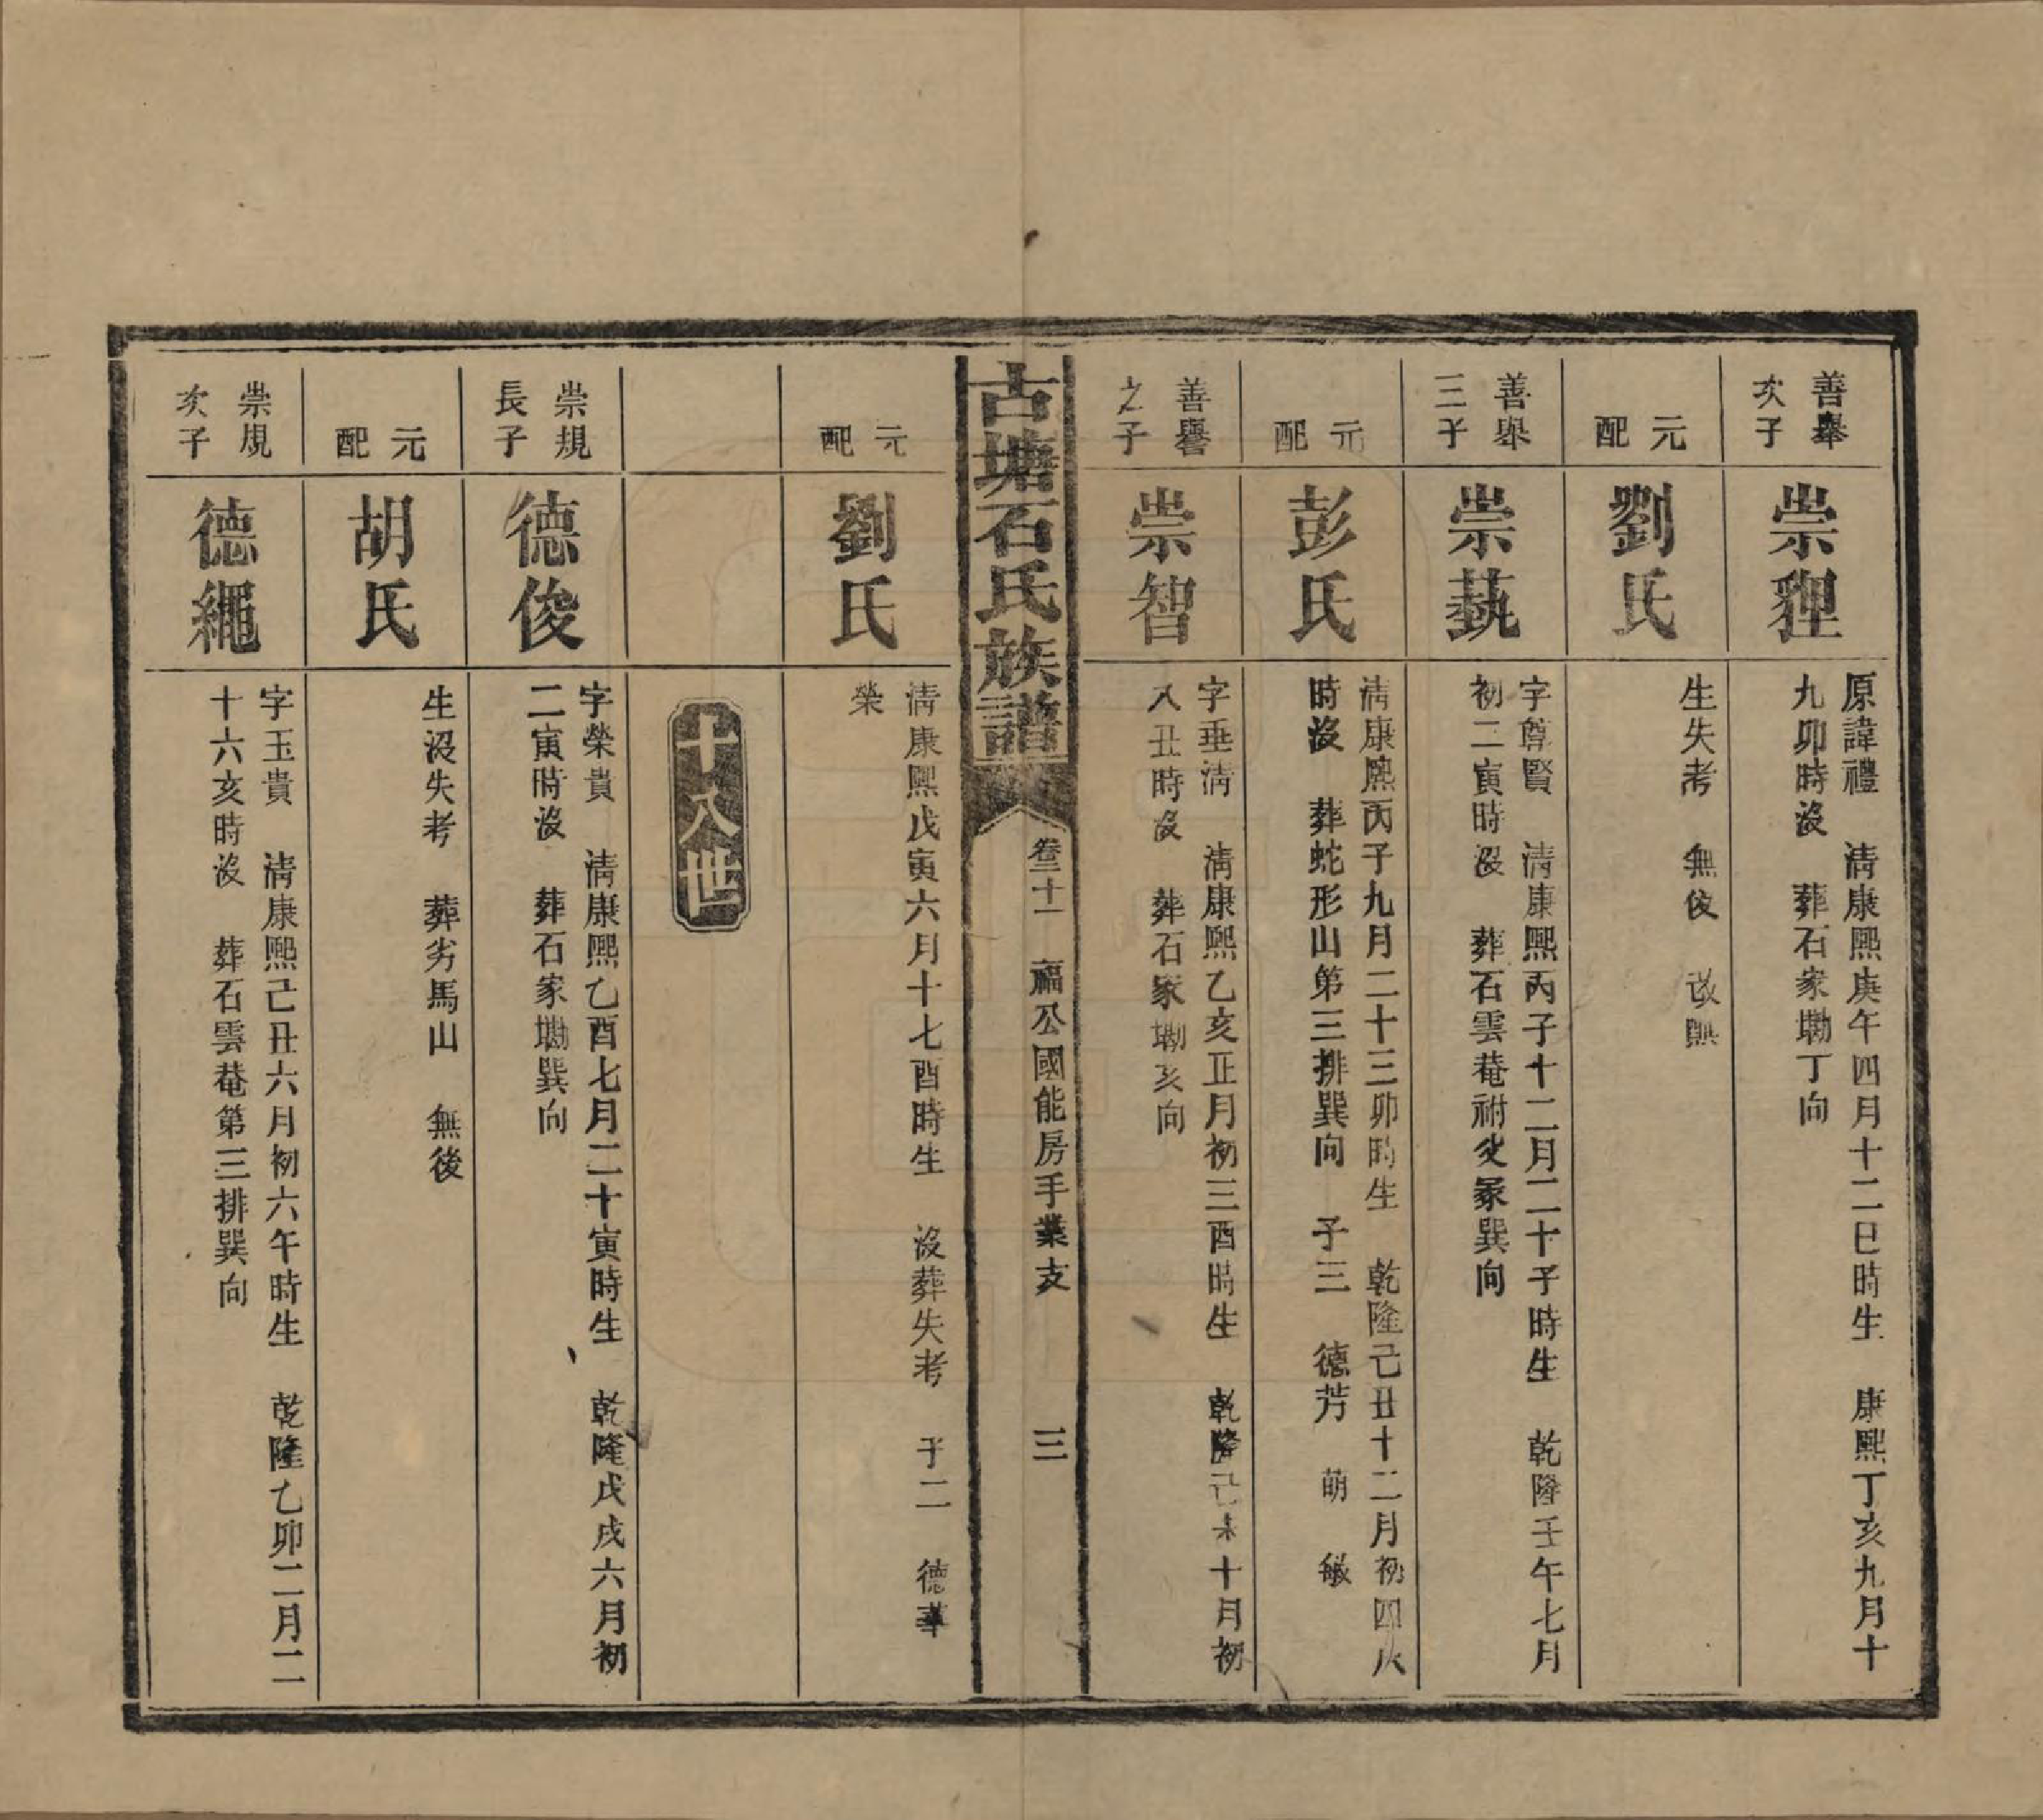 善舉
次子
崇狸
原諱禮　清康熙庚午四月十二巳時生　康熙丁亥九月十
九卯時沒　葬石家墈丁向
元
配
劉氏
生失考　無後　改熊
善舉
三子
崇藝
字尊賢　清康熙丙子十二月二十子時生　乾隆壬午七月
初二寅時沒　葬石雲菴祔父冡巽向
元
配
彭氏
清康熙丙子九月二十三卯時生　乾隆己丑十二月初四
時沒　葬蛇形山第三排巽向　子三　德芳　萌　敏
善譽
之子
崇智
字垂清　清康熙乙亥正月初三酉時生　乾隆己未十月初
八丑時沒　葬石家墈亥向
古塘石氏族譜
卷二十一　福公國能房手業支　三
元
配
劉氏
清康熙戊寅六月十七酉時生　沒葬失考　子二　德華
榮
十八世
崇規
長子
德俊
字榮貴　清康熙乙酉七月二十寅時生　乾隆戊戌六月初
二寅時沒　葬石家墈巽向
元
配
胡氏
生沒失考　葬劣馬山　無後
崇規
次子
德繩
字玉貴　清康熙己丑六月初六午時生　乾隆乙卯二月二
十六亥時沒　葬石雲菴第三排巽向